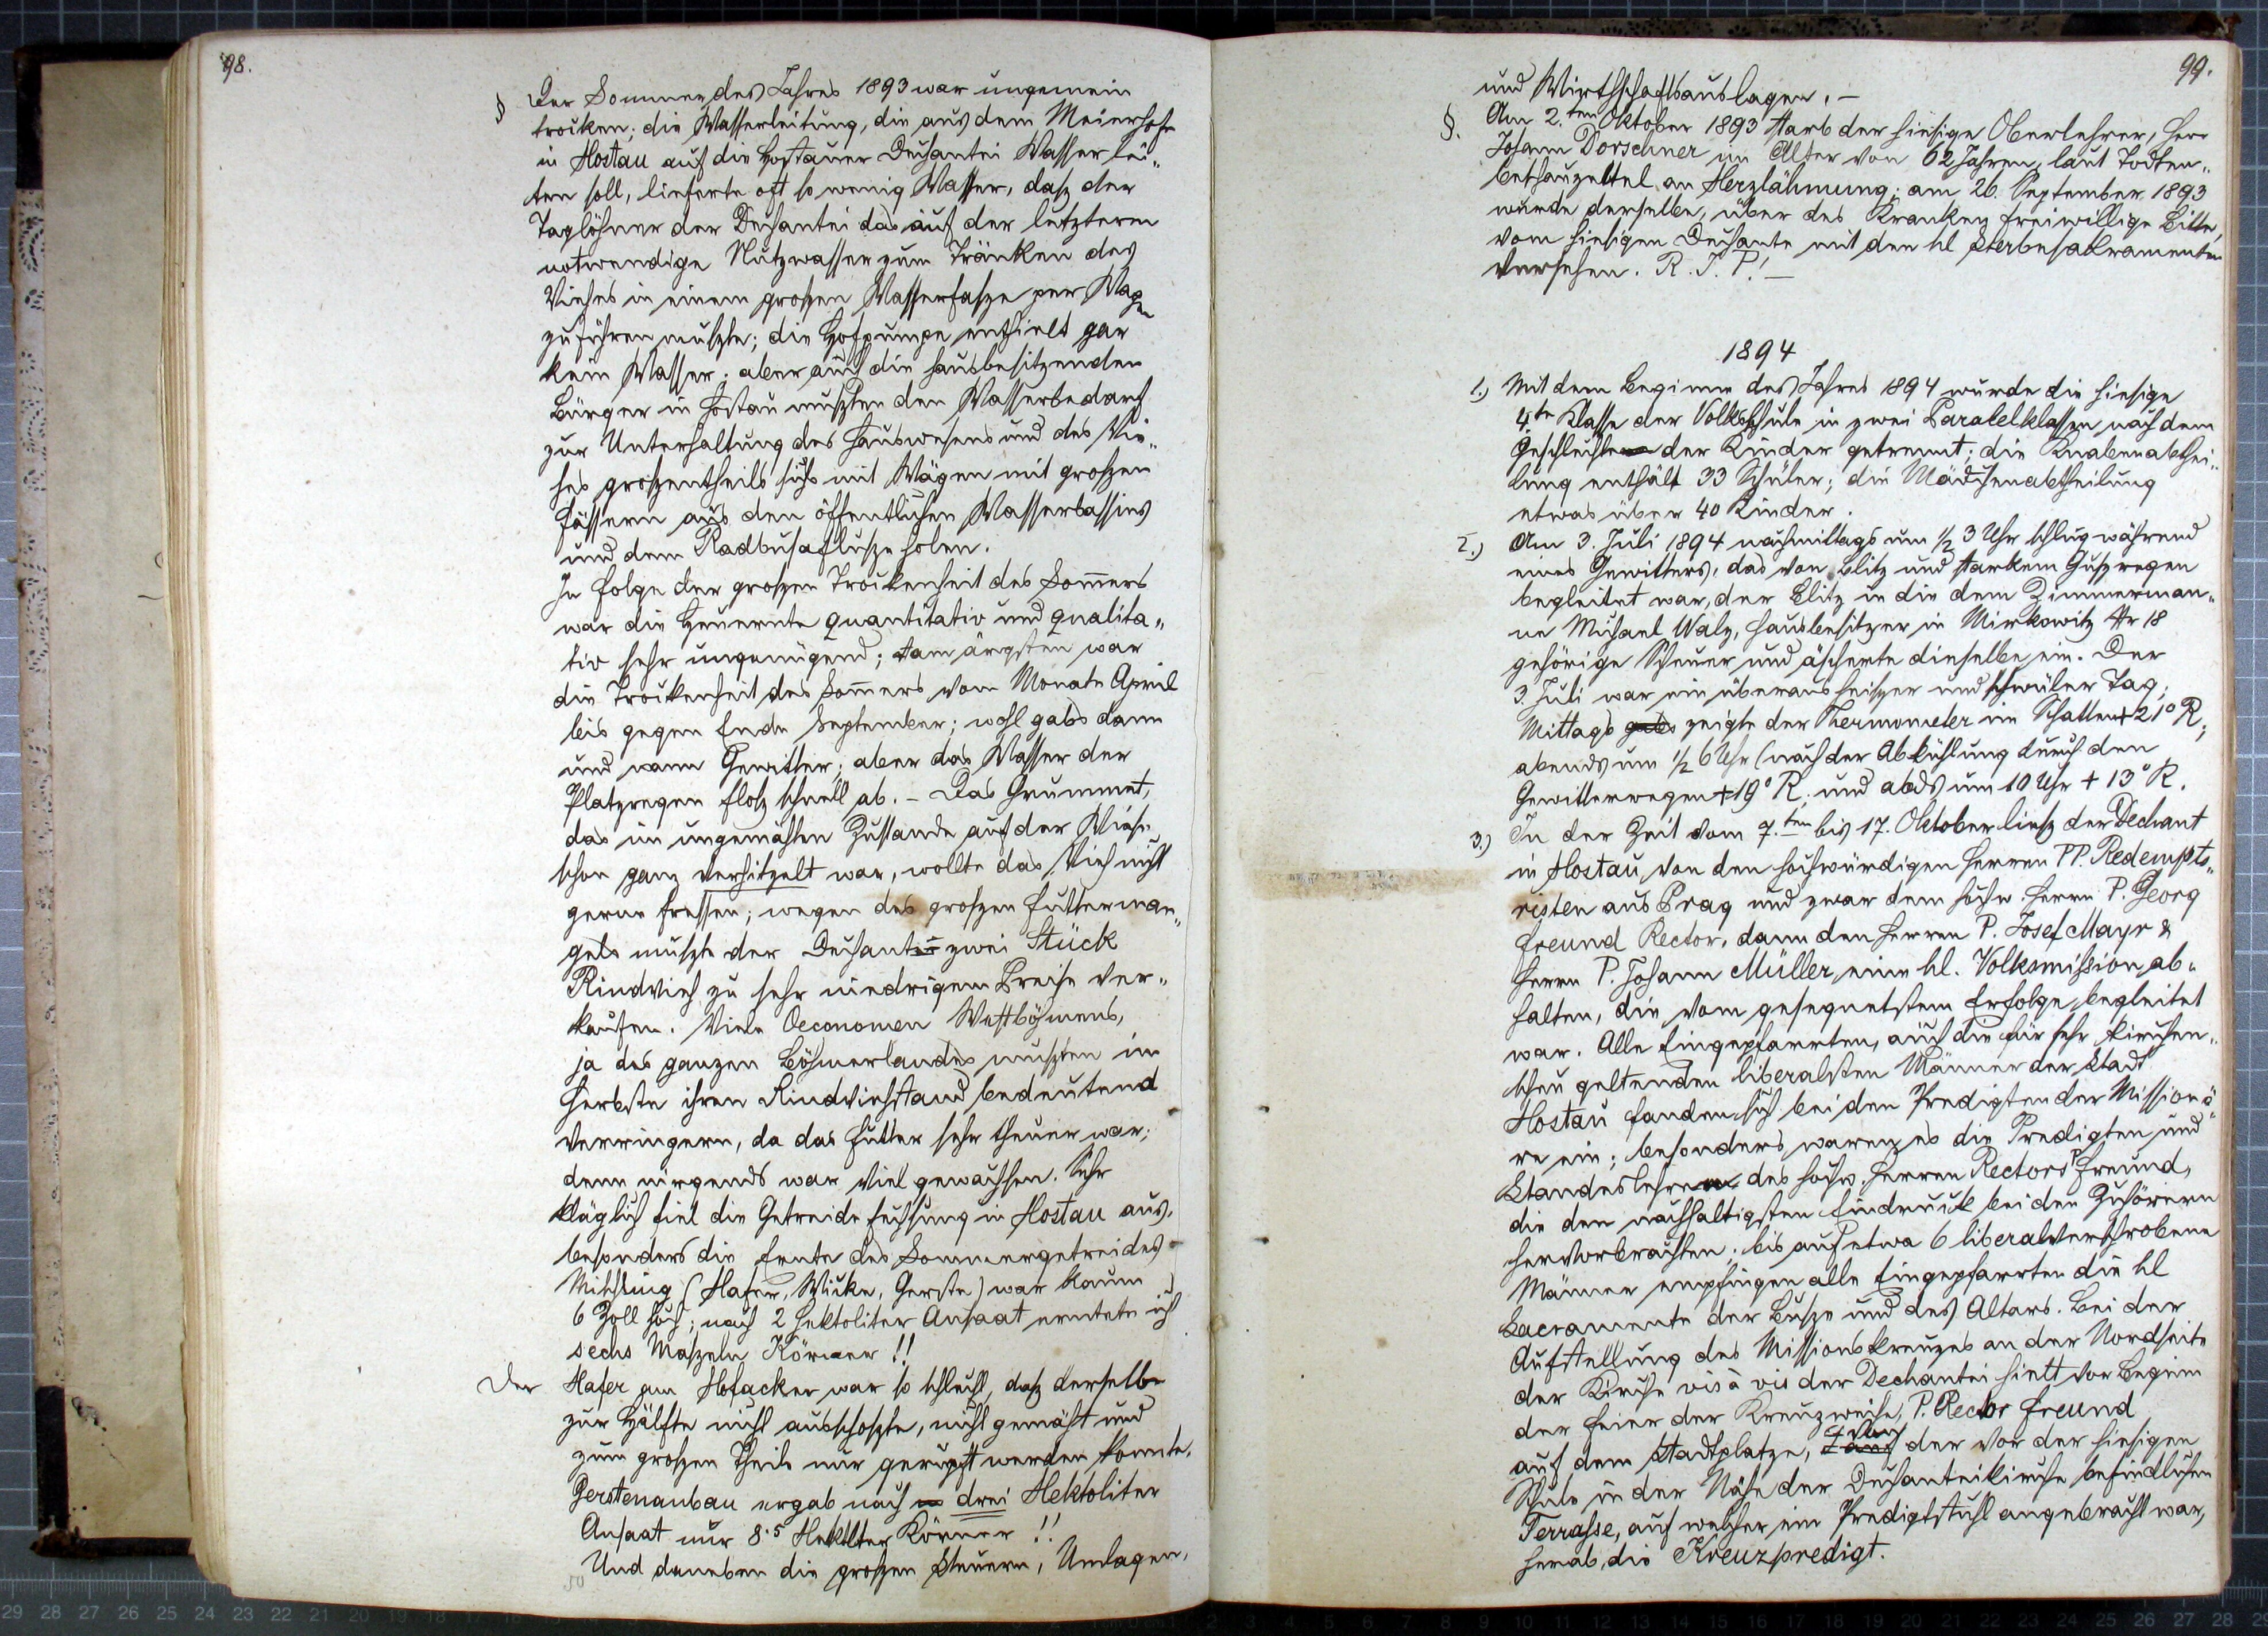 98.
§ Der Sommer des Jahres 1893 war ungemein
trocken; die Wasserleitung, die aus dem Meierhofe
in Hostau auf die Hostauer Dechantei Wasser lei„
ten soll, lieferte oft so wenig Wasser, dasz der
Taglöhner der Dechantei das auf der letzteren
notwendige Nutzwasser zum Tränken des
Viehes in einem groszen Wasserfasze per Wagen
zuführen muszte; die Hofpumpe enthielt gar
kein Wasser; aber auch die hausbesitzenden
Bürger in Hostau muszten den Wasserbedarf
zur Unterhaltung des Hauswesens und des Vie„
hes groszentheils sich mit Wägen mit groszen
Fässern aus den öffentlichen Wasserbassins
und dem Radbusaflusze holen.
In Folge der groszen Trockenheit des Sommers
war die Heuernte quantitativ und qualita„
tiv sehr ungenügend; am ärgsten war
die Trockenheit des Sommers vom Monate April
bis gegen Ende September; wohl gabs dann
und wann Gewitter; aber das Wasser der
Platzregen flosz schnell ab. – Das Grummet,
das im ungemähten Zustande auf der Wiese
schon ganz verhitzelt war, wollte das Vieh nicht
gerne fressen; wegen des groszen Futterman„
gels muszte der Dechant zwei Stück
Rindvieh zu sehr niedrigem Preise ver„
kaufen. Viele Oeconomen Westböhmens,
ja des ganzen Böhmerlandes muszten im
Herbste ihren Rindviehstand bedeutend
verringern, da das Futter sehr theuer war;
denn nirgends war viel gewachsen. Sehr
kläglich fiel die Getreidefechsung in Hostau aus,
besonders die Ernte des Sommergetreides
Mischling (Hafer, Wicke, Gerste) war kaum
6 Zoll hoch; nach 2 Hektoliter Ansaat erntete ich
sechs Maszeln Körner!!
Der Hafer am Hofacker war so schlecht, dasz derselbe
zur Hälfte nicht ausschoszte, nicht gemäht und
zum groszen Theile nur gerupft werden konnte.
Gerstenanbau ergab nach drei Hektoliter
Ansaat nur 8·5 Hektlter Körner!!
Und daneben die groszen Steuern, Umlagen,
99.
und Wirthschaftsauslagen. –
§. Am 2.ten Oktober 1893 starb der hiesige Oberlehrer, Herr
Johann Dorschner im Alter von 62 Jahren, laut Todten„
beschauzettel an Herzlähmung; am 26. September 1893
wurde derselbe, über des Kranken freiwillige Bitte,
vom hiesigen Dechante mit den hl Sterbesakramenten
versehen. R. I. P.! –
1894
1.) Mit dem Beginne des Jahres 1894 wurde die hiesige
4te Klasse der Volksschule in zwei Paralelklassen nach dem
Geschlechte der Kinder getrennt; die Knabenabthei„
lung enthält 33 Schüler; die Mädchenabtheilung
etwas über 40 Kinder.
2.) Am 3. Juli 1894 nachmittags um ½ 3 Uhr schlug während
eines Gewitters, das von Blitz und starkem Guszregen
begleitet war, der Blitz in die dem Zimmerman„
ne Michael Walz, Hausbesitzer in Mirkowitz Nr 18
gehörige Scheuer und äscherte dieselbe ein. Der
3. Juli war ein überaus heiszer und schwüler Tag;
Mittags gabs zeigte der Thermometer im Schatten +21° R;
abends um ½ 6 Uhr (nach der Abkühlung durch den
Gewitterregen +19° R; und abds um 10 Uhr +13° R.
3.) In der Zeit vom 7.ten bis 17. Oktober liesz der Dechant
in Hostau von den hochwürdigen Herren PP. Redempto„
risten aus Prag und zwar dem hochw. Herrn P. Georg
Freund Rector, dann den Herren P. Josef Mayr &
Herrn P. Johann Müller eine hl. Volksmission ab„
halten, die vom gesegnetstem Erfolge begleitet
war. Alle Eingepfarrten, auch die für sehr kirchen„
scheu geltenden liberalsten Männer der Stadt
Hostau fanden sich bei den Predigten der Missionä„
re ein; besonders waren es die Predigten und
Standeslehren des hochw. Herren Rectors P Freund,
die den nachhaltigsten Eindruck bei den Zuhörern
hervorbrachten; bis auf etwa 6 liberalverschrobene
Männer empfingen alle Eingepfarrten die hl
Sacramente der Busze und des Altars. Bei der
Aufstellung des Missionskreuzes an der Nordseite
der Kirche vis à vis der Dechantei hielt vor Beginn
der Feier der Kreuzweihe, P. Rector Freund
auf dem Stadtplatze, von der vor der hiesigen
Schule in der Nähe der Dechanteikirche befindlichen
Terrasse, auf welcher ein Predigtstuhl angebracht war,
herab, die Kreuzpredigt.